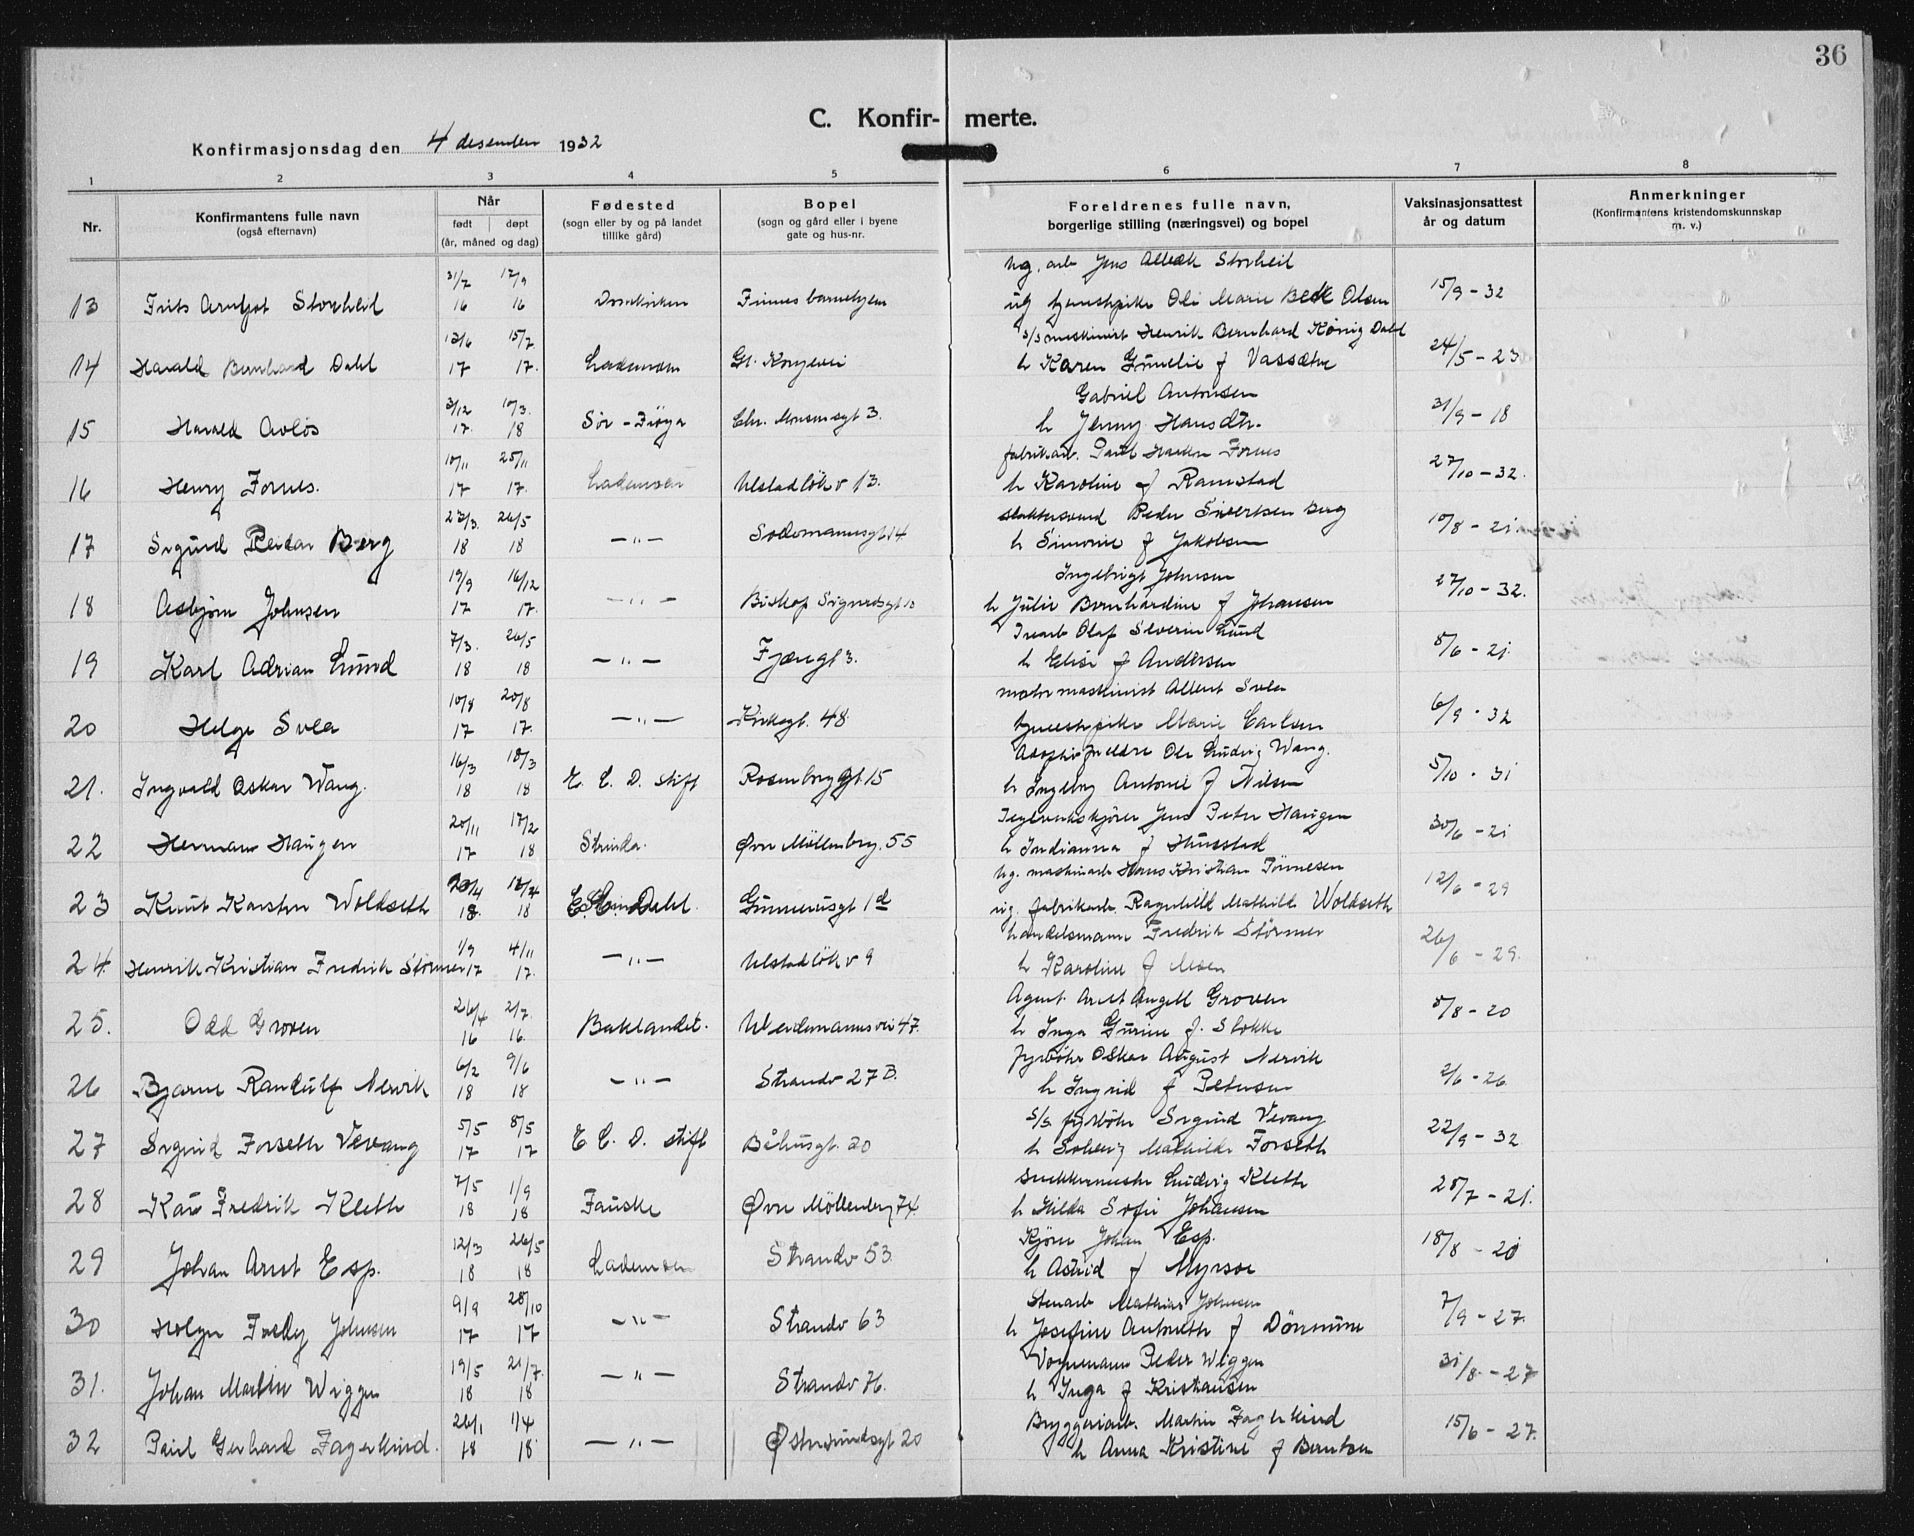 36
C. Konfir- merte.
Konfirmasjonsdag den 4 desember 1932
1 2 3 4 5 6 7 8
Nr.
Konfirmantens fulle navn
(også efternavn)
Når
født døpt
(år, måned og dag)
Fødested
(sogn eller by og på landet
tillike gård)
Bopel
(sogn og gård eller i byene
gate og hus-nr.
Foreldrenes fulle navn,
borgerlige stilling (næringsvei) og bopel
Vaksinasjonsattest
år og datum
Anmerkninger
(Konfirmantens kristendomskunnskap
m. v.)
31/7 17/9 ug. arb Jens Storheil
13 Frits Storheil 16 16 Domkirken Finnes barnehjem ug tjenestepike Oli Marie Beck Olsen 15/9-32
15/7 s/s maskinist Henrik Bernhard König Dahl
14 Harald Bernhard Dahl 17 17. Lademoen Gl. Kongevei h Karen f 24/5-23
3/12 10/3. Gabriel Antonsen
15 Harald 17. 18 Sör-Fröya Chr. Monsensgt 3. h Jenny Hansdtr. 31/9-18
10/11 25/11 fabrikarb. Fornes
16 Henry Fornes. 17 17. Lademoen Ulstadlökv 13. h Karoline f Ramstad 27/10-32.
23/3. 26/5 Peder Sivertsen Berg
17 Sigurd Reidar Berg 18 18 -"- 14 h Simonie f Jakobsen 10/8-21.
19/9 16/12 Ingebrigt Johnsen
18 Asbjörn Johnsen 17 17. -"- Biskop Sigurdsgt h Julie Bernhardine f Johansen 27/10-32.
7/3. 26/5 Olaf Severin Lund
19 Karl Adrian Lund 18 18 -"- Fjæregt 3. h Elise f Andersen 8/6-21.
10/8 20/8 motormaskinist Albert
20 Helge 17 17. -"- Kirkegt. 48. tjenestepike Marie Carlsen 6/9-32
16/3 18/3 Adoptivforeldre Ole Ludvig Wang.
21. Ingvald Oskar Wang. 18 18 E. C. D. stift Rosenborggt 15 h Ingeborg Antonie f Nilsen 5/10-31
20/11 17/2 Teglverkskjörer Jens Peter Haugen
22 Herman Haugen 17 18 Strinda. Övre Möllenbrg. 55 h Indianna f Husstad 30/6-21
ug. maskinarb Hans Kristian Tönnesen
23 Knut Karsten Woldseth 18. 18 Gunnerusgt 1d ug. fabrikarb. Ragnhild Mathilde Woldseth 12/6-29
1/9 4/11 handelsmann Fredrik Störmer
24. Henrik Kristian Fredrik Störmer 17 17. -"- Ulstadlökv 9 h Karoline f Moen 26/6-29.
26/4 2/7. Agent. Arnt Angell Groven
25. Odd Groven 16 16. Baklandet. Weidemannsvei 47. h Inga Gurine f. Slokke 8/8-20
6/2 9/6 fyrböter Oskar August Nervik
26 Bjarne Randulf Nervik 18 18 -"- Strandv 27 B. h Ingrid f Petersen 2/6-26
5/5 8/5 s/s fyrböter Sigurd Vevang
27 Sigurd Forseth Vevang 17 17 E. C. D. stift Båhusgt. 20 h Solveig Mathilde Forseth 22/9-32
7/5 1/9 Snekkermester Ludvig Kleth
28 Fredrik Kleth 18 18 Fauske Övre Möllenberg 74. h Hilda Sofie Johansen 28/7-21.
12/3 26/5 Kjörer Johan Esp.
29 Johan Arnt Esp. 18 18 Lademoen Strandv 53. h Astrid f 18/8-20
9/9 28/10 Stenarb Mathias Johnsen
30 Holger Johnsen 17 17 -"- Strandv 63 h Josefine f 7/9-27.
19/5 21/7. Vognmann Peder Wiggen
31. Johan Martin Wiggen 18 18 -"- Strandv 76. h Inga f Kristiansen 31/8-27
26/1 1/4 Bryggeriarb. Martin Fagerlund
32 Paul Gerhard Fagerlund. 18 18 -"- Östersundsgt 20 h Anna Kristine f Berntsen 15/6-27.